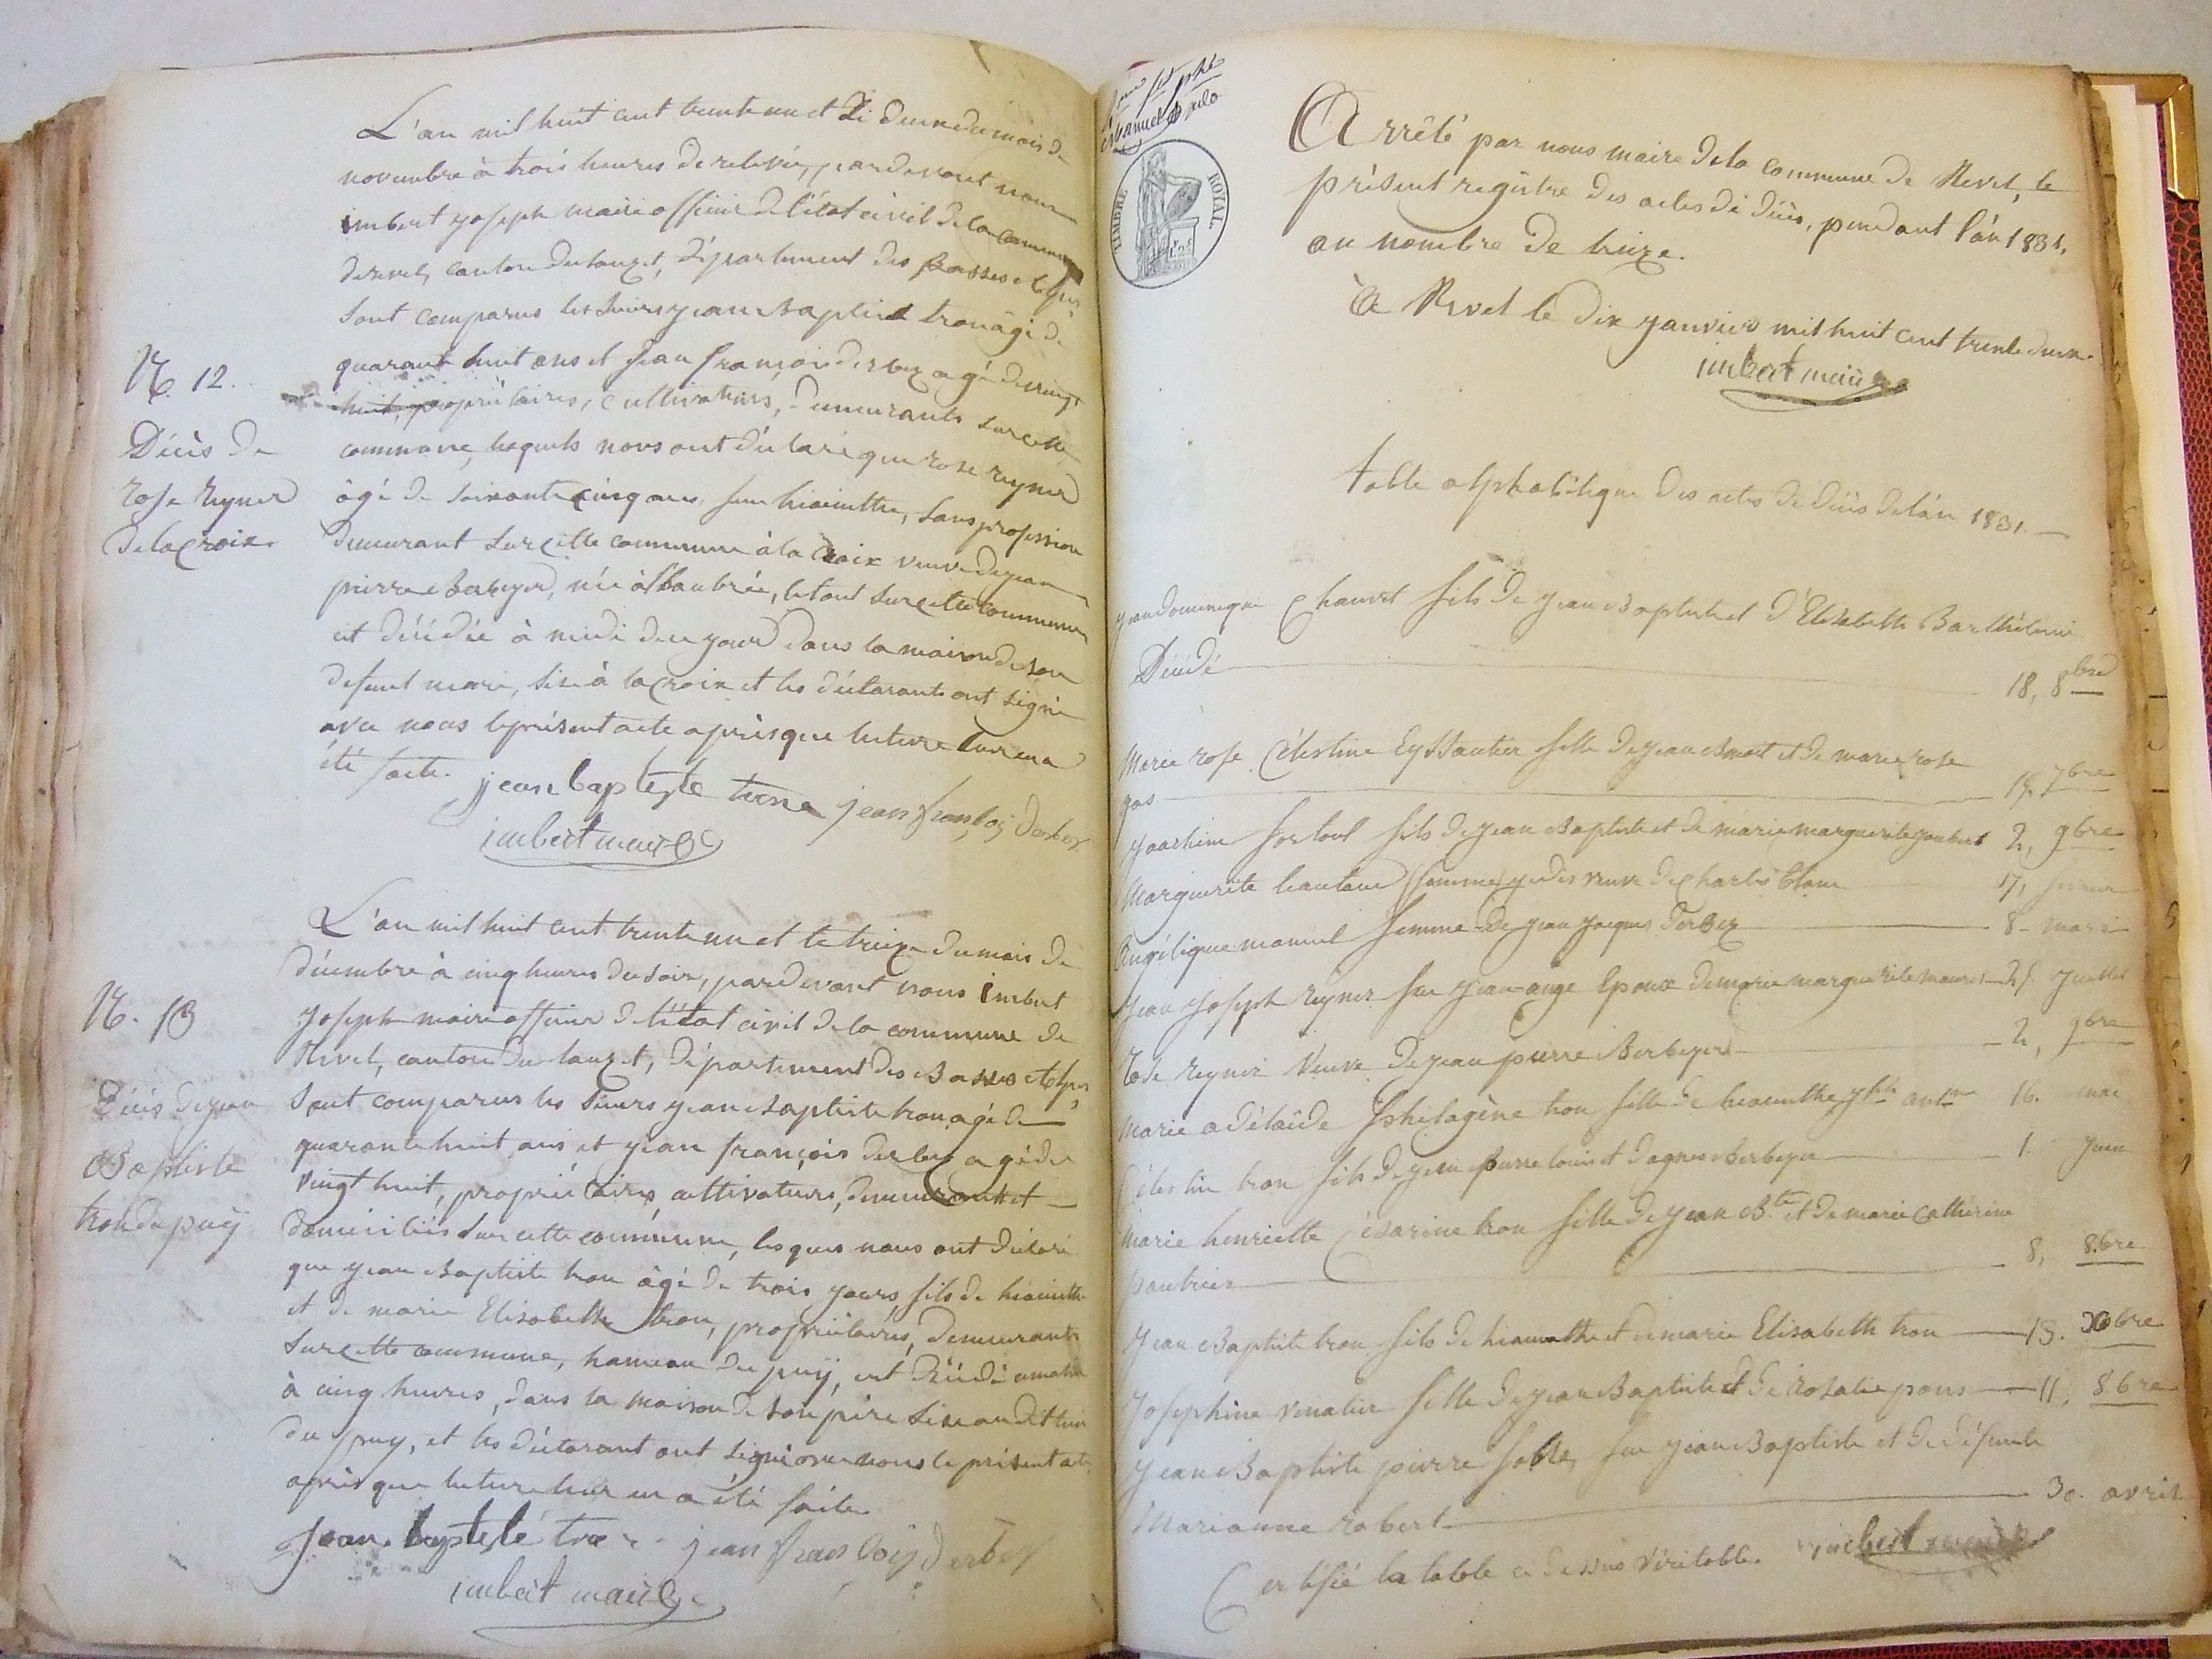 L'an mil huit cent trente un et Le deux du mois de
novembre à trois heures de relevée, pardevant nous
imbert joseph maire officier de l'état civil de la commune
de revel, canton du lauzet, département des Basses alpes
Sont comparus les Sieurs jean Baptiste tron âgé de
quarante huit ans et jean françois derbez agé de vingt
N. 12.
huit, propriétaires, cultivateurs, demeurants sur cette
commune, lesquels nous ont déclaré que rose reynier
Décès de
rose reynier
de la croix.
âgé de soixante cinq ans feu hiacinthe, sans profession
demeurant sur cette commune à la croix veuve de jean
pierre Berbeyer, née à le tout sur cette commune
est décédée à midi de ce jour dans la maison de son
defunt mari, sise à la croix et les déclarants ont signé
avec nous le présent acte après que lecture leur en a
été faite. jean baptiste trone jean franςois derbez
imbert maire
L'an mil huit cent trente un et le treize du mois de
décembre à cinq heures du soir, pardevant nous imbert
N. 13
joseph maire officier de l'état civil de la commune de
Revel, canton du lauzet, département des Basses Alpes,
Décès de jean
Baptiste
tron du puÿ
Sont comparus les Sieurs jean Baptiste tron agé de
quarante huit ans et jean françois derbez agé de
vingt huit, propriétaires, cultivateurs, demeurants et
domiciliés sur cette commune, lesquels nous ont déclaré
que jean Baptiste tron âgé de trois jours fils de hiacinthe
et de marie Elisabeth tron, propriétaires, demeurants
sur cette commune, hameau du puÿ, est décédé ce matin
à cinq heures, dans la maison de son père sise au dit lieu
du puy, et les déclarant ont signé avec nous le présent acte
après que lecture leur en a été faite.
jean baptiste tron jean franςois derbez
imbert maire
TIMBRE ROYAL
Arrêté par nous maire de la commune de Revel, le
présent registre des actes de décès, pendant l'an 1831,
au nombre de treize.
À Revel le dix janvier mil huit cent trente deux.
imbert maire
table alphabétique des actes de décès de l'an 1831.
jean dominique Chauvet fils de jean Baptiste et d'Élisabeth Barthélemi
Décédé 18, 8bre
Marie rose Célestine Eyssautier fille de jean et de marie rose
gas 19. 7bre
joachim fortoul fils de jean Baptiste et de marie marguerite joubert 2, 9bre
Marguerite veuve de charles blanc 17,
Angélique manuel femme de jean jacques derbez 8 mars
jean joseph reynier feu jean ange époux de marie marguerite 25 juillet
rose reynier veuve de jean pierre Berbeyer 2, 9bre
Marie adélaïde philagène tron fille de hiacinthe 16. mai
Célestin tron fils de jean pierre louis et d'agnes Berbeyer 1 juin
Marie henriette Césarine tron fille de jean B.te et de marie catherine
pautrier 8, 8bre
jean Baptiste tron fils de hiacinthe et de marie Elisabeth tron 13. Xbre
Josephine vinatier fille de jean Baptiste et de rosalie pons 11, 8bre
jean Baptiste pierre feu jean Baptiste et de défunte
Marianne robert 30. avril
Certifié la table ci dessus véritable. imbert maire